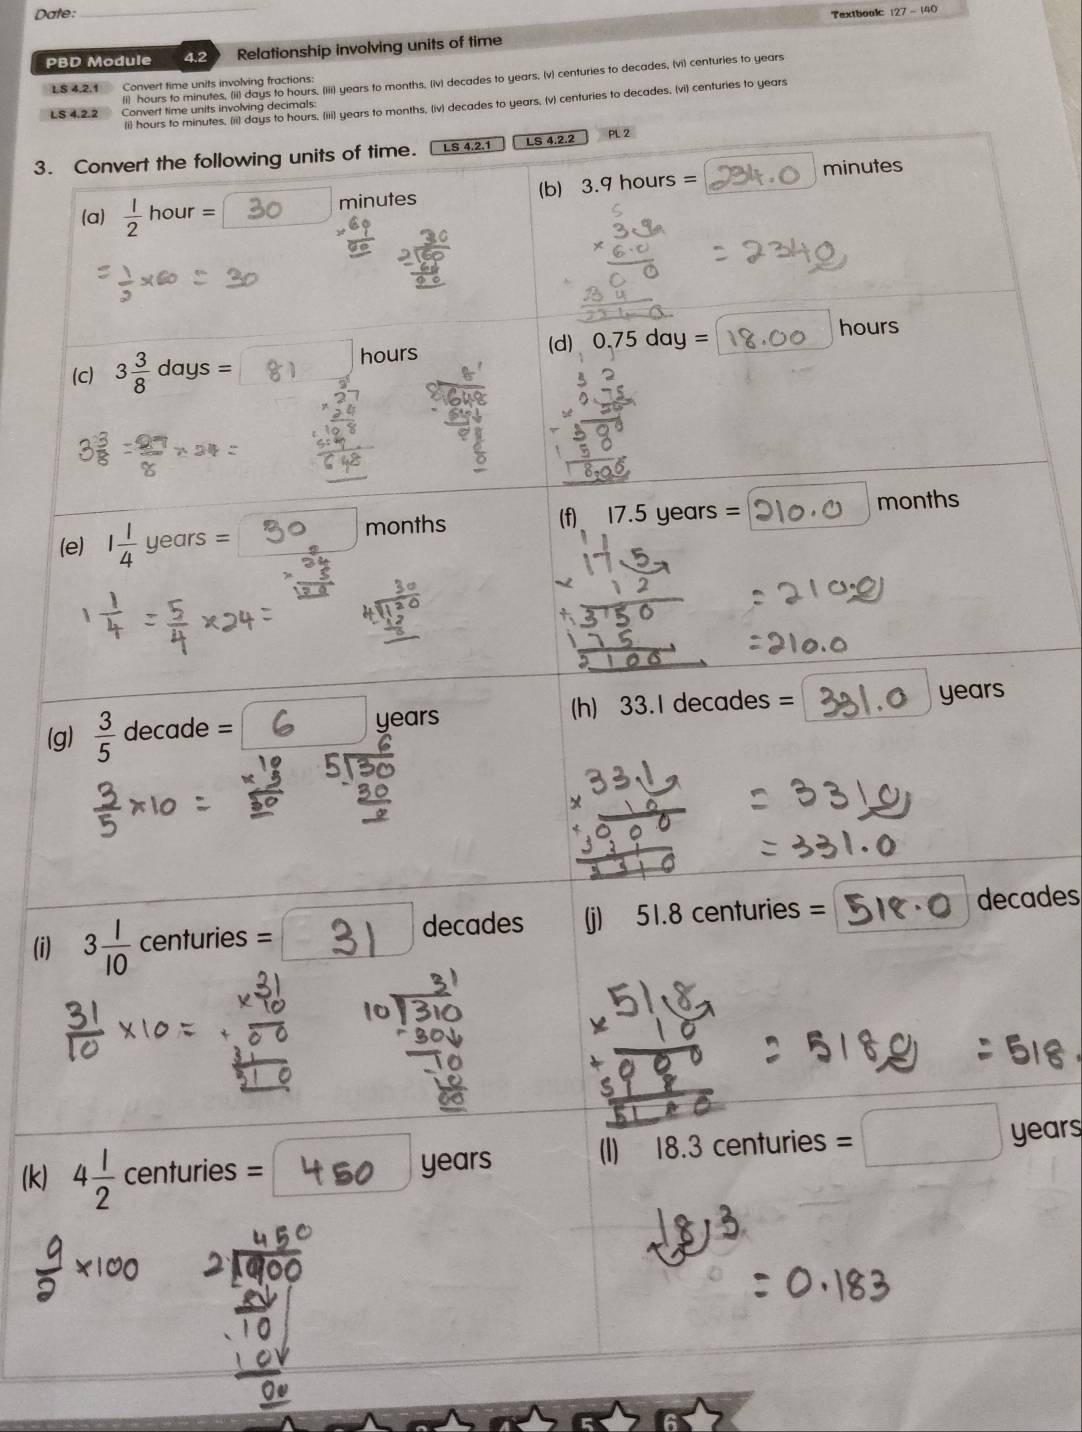 Date:
Textbook: 127 - 140
PBD Module 4.2 Relationship involving units of time
LS 4.2.1 Convert time units involving fractions:
(i) hours to minutes, (ii) days to hours, (iii) years to months, (iv) decades to years, (v) centuries to decades, (vi) centuries to years
LS 4.2.2 Convert time units involving decimals:
(i) hours to minutes, (ii) days to hours, (iii) years to months, (iv) decades to years, (v) centuries to decades, (vi) centuries to years
3. Convert the following units of time. LS 4.2.1 LS 4.2.2 PL 2
(a) 1/2 hour = 30 minutes
= 1/2 × 60 = 30
(b) 3.9 hours = 234.0 minutes
= 2340
(c) 3 3/8 days = 81 hours
3 3/8 = 27/8 × 24 =
(d) 0.75 day = 18.00 hours
(e) 1 1/4 years = 30 months
1 1/4 = 5/4 × 24 =
(f) 17.5 years = 210.0 months
17.5
× 12
350
175
2100
= 210.0
= 210.0
(g) 3/5 decade = 6 years
3/5 × 10 =
6
5 30
30
(h) 33.1 decades = 331.0 years
33.1
× 10
000
331
3310
= 3310
= 331.0
(i) 3 1/10 centuries = 31 decades
31/10 × 10 =
× 31
10
31
10 310
- 30
10
(j) 51.8 centuries = 518.0 decades
51.8
× 10
000
518
5180
= 5180 = 518.
(k) 4 1/2 centuries = 450 years
9/2 × 100
450
2 900
8
10
10
00
(l) 18.3 centuries = years
18.3
= 0.183
5 6